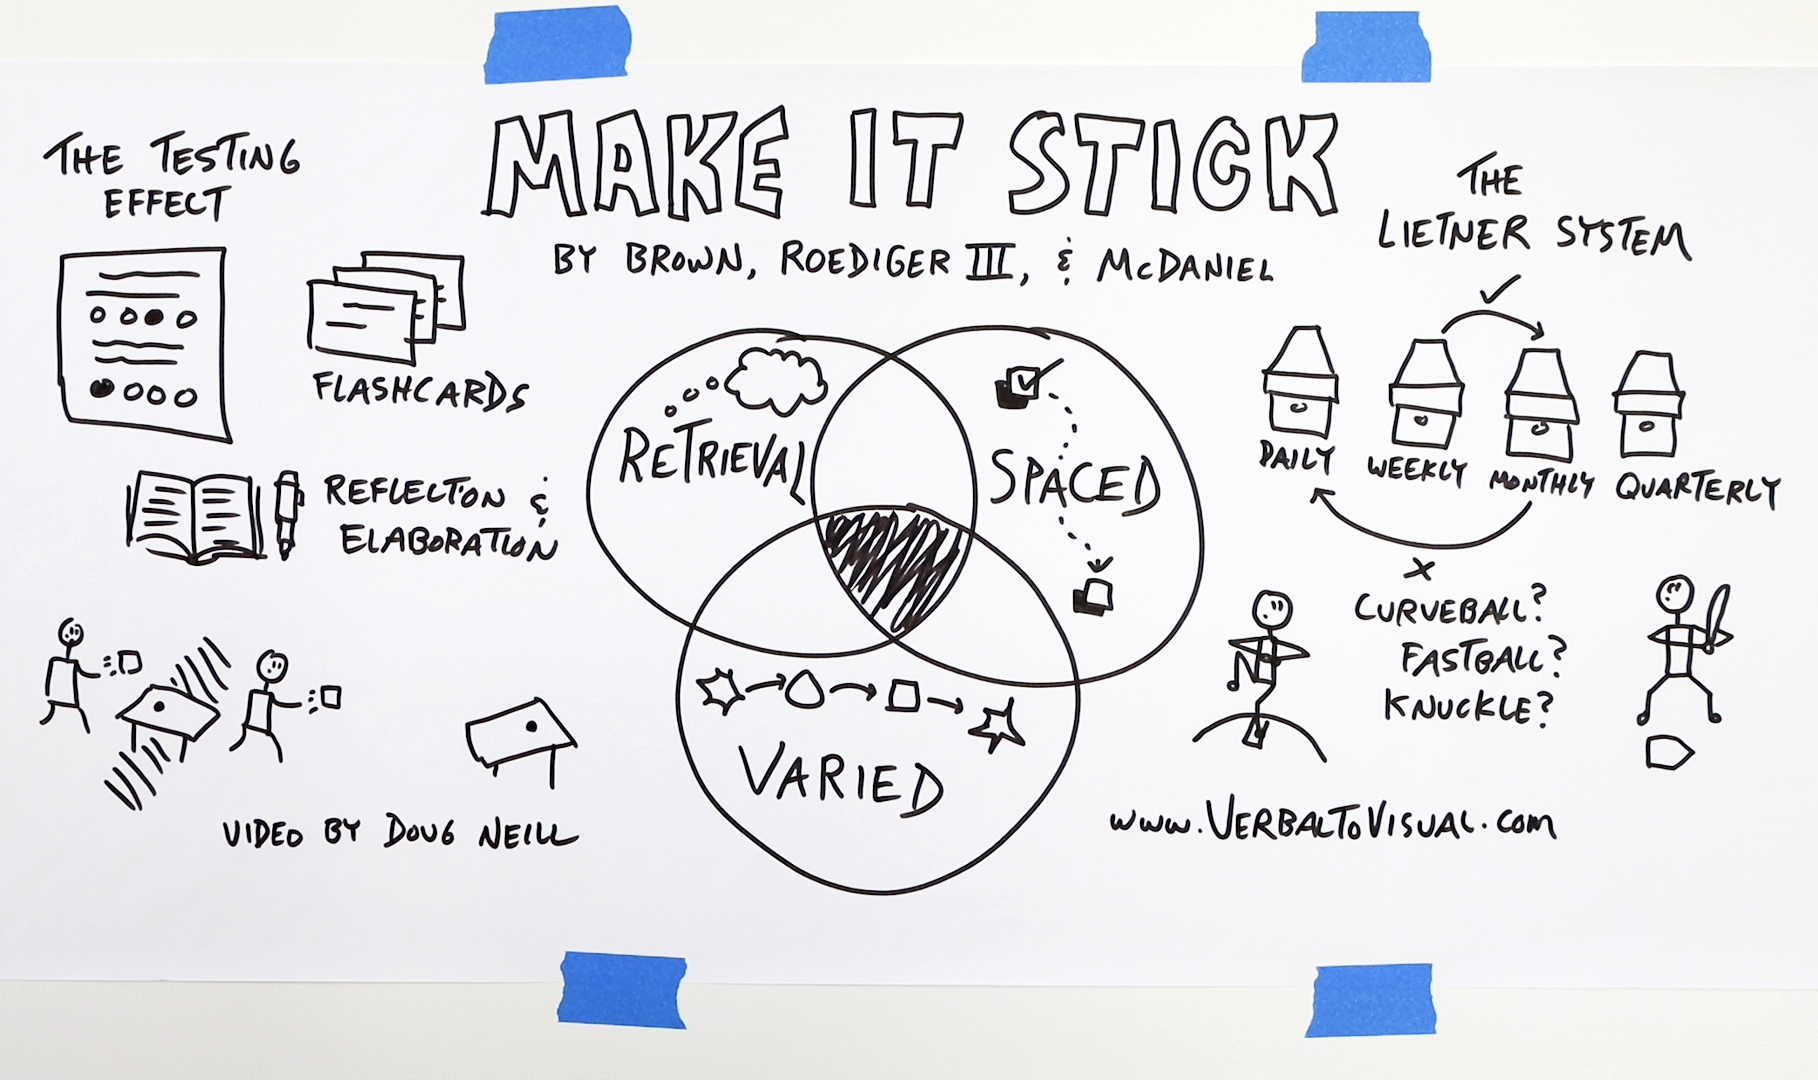 MAKE IT STICK
BY BROWN, ROEDIGER III, & McDANIEL
THE TESTING
EFFECT
FLASHCARDS
REFLECTION &
ELABORATION
VIDEO BY DOUG NEILL
RETRIEVAL
SPACED
VARIED
THE
LIETNER SYSTEM
DAILY
WEEKLY
MONTHLY
QUARTERLY
CURVEBALL?
FASTBALL?
KNUCKLE?
www.VERBALTOVISUAL.com